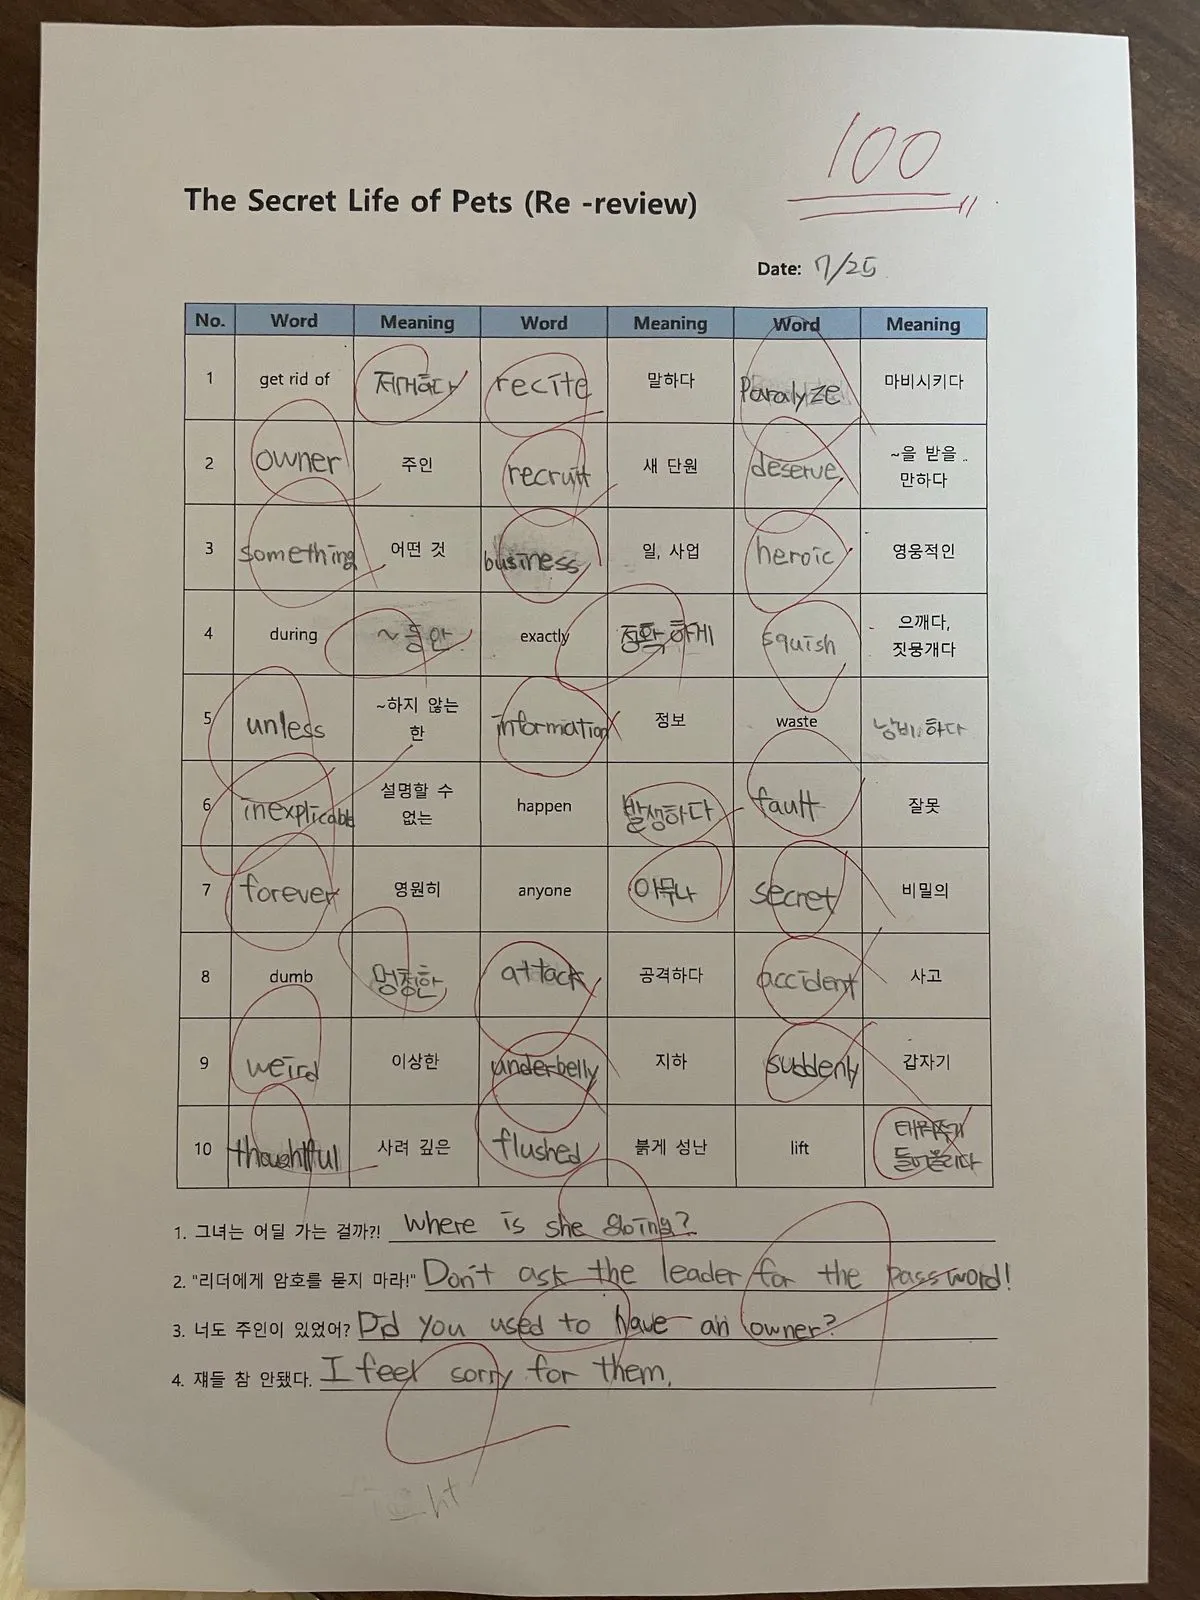 100
The Secret Life of Pets (Re -review)
Date: 7/25
No. Word Meaning Word Meaning Word Meaning
1 get rid of 제거하다 recite 말하다 Paralyze 마비시키다
2 owner 주인 recruit 새 단원 deserve ~을 받을 만하다
3 something 어떤 것 business 일, 사업 heroic 영웅적인
4 during ~동안 exactly 정확하게 squish 으깨다, 짓뭉개다
5 unless ~하지 않는 한 information 정보 waste 낭비하다
6 inexplicable 설명할 수 없는 happen 발생하다 fault 잘못
7 forever 영원히 anyone 아무나 secret 비밀의
8 dumb 멍청한 attack 공격하다 accident 사고
9 weird 이상한 underbelly 지하 suddenly 갑자기
10 thoughtful 사려 깊은 flushed 붉게 성난 lift 태워주기 들어올리다
1. 그녀는 어딜 가는 걸까?! Where is she going?
2. "리더에게 암호를 묻지 마라!" Don't ask the leader for the password!
3. 너도 주인이 있었어? Did you used to have an owner?
4. 쟤들 참 안됐다. I feel sorry for them.